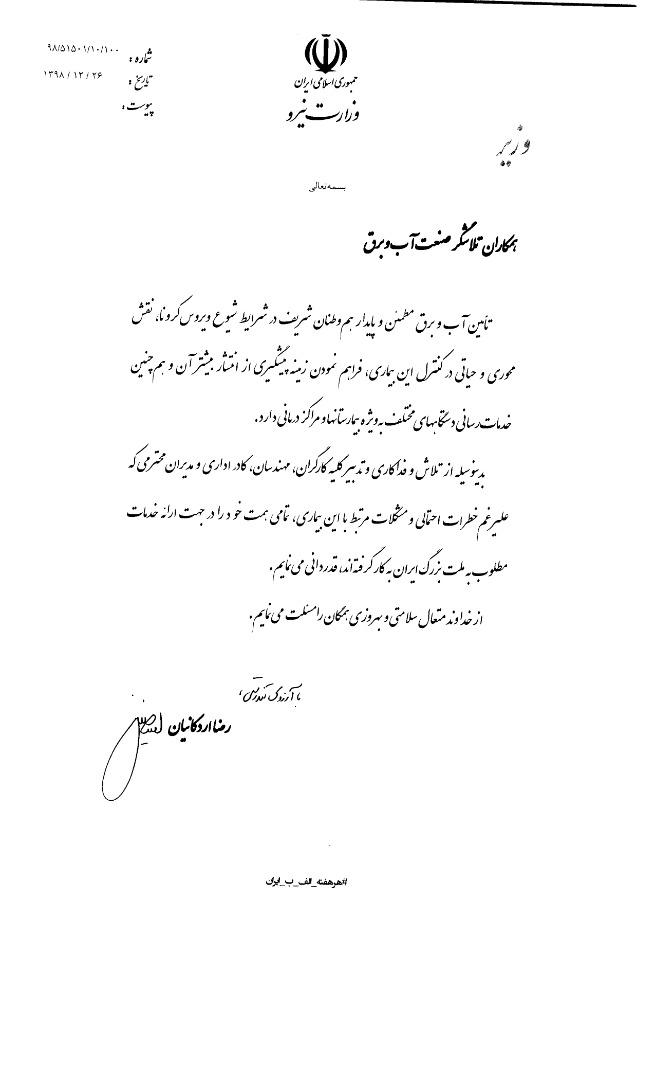 جمهوری اسلامی ایران
وزارت نیرو
شماره : ۹۸/۵۱۵۰۱/۱۰/۱۰۰
تاریخ : ۱۳۹۸ / ۱۲ / ۲۶
پیوست :
وزیر
بسمه تعالی
همکاران تلاشگر صنعت آب و برق
تأمین آب و برق مطمئن و پایدار هم وطنان شریف در شرایط شیوع ویروس کرونا، نقش
محوری و حیاتی در کنترل این بیماری، فراهم نمودن زمینه پیشگیری از انتشار بیشتر آن و هم چنین
خدمات رسانی دستگاههای مختلف به ویژه بیمارستانها و مراکز درمانی دارد.
بدینوسیله از تلاش و فداکاری و تدبیر کلیه کارگران، مهندسان، کادر اداری و مدیران محترمی که
علیرغم خطرات احتمالی و مشکلات مرتبط با این بیماری، تمامی همت خود را در جهت ارائه خدمات
مطلوب به ملت بزرگ ایران به کار گرفته‌اند، قدردانی می نمایم.
از خداوند متعال سلامتی و بهروزی همگان را مسئلت می نمایم.
با آرزوی تندرستی،
رضا اردکانیان
#هرهفته_الف_ب_ایران